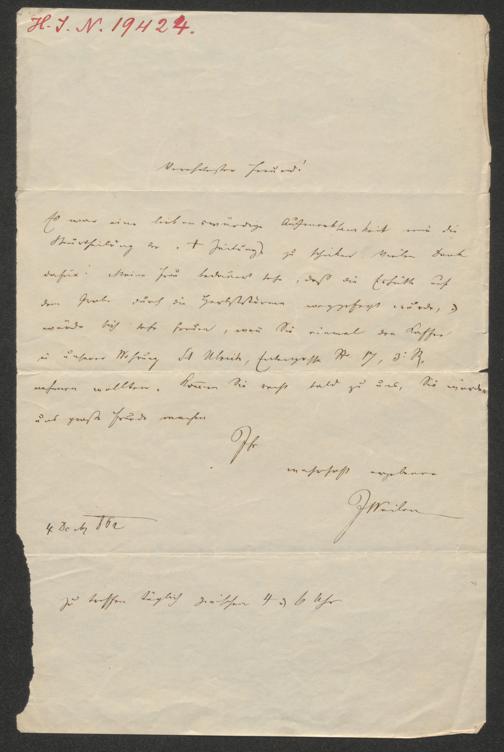 H. I. N. 19424.
Verehrtester Freund!
Es war eine liebenswürdige Aufmerksamkeit mir die
Beurtheilung der + Zeitung) zu schicken Vielen Dank
dafür! Meine Frau bedauert sehr, daß die Epheu auf
dem Grabe durch die Herbststürme weggefegt wurde,
würde sich sehr freuen, wenn Sie einmal den Kaffee
in unserer Wohnung St Ulrich, Nr 17, 3. St,
nehmen wollten. Kommen Sie recht bald zu uns, Sie würden
uns große Freude machen
Ihr
wahrhaft ergebener
J Weilen
4 Dez 862
zu treffen täglich zwischen 4 & 6 Uhr